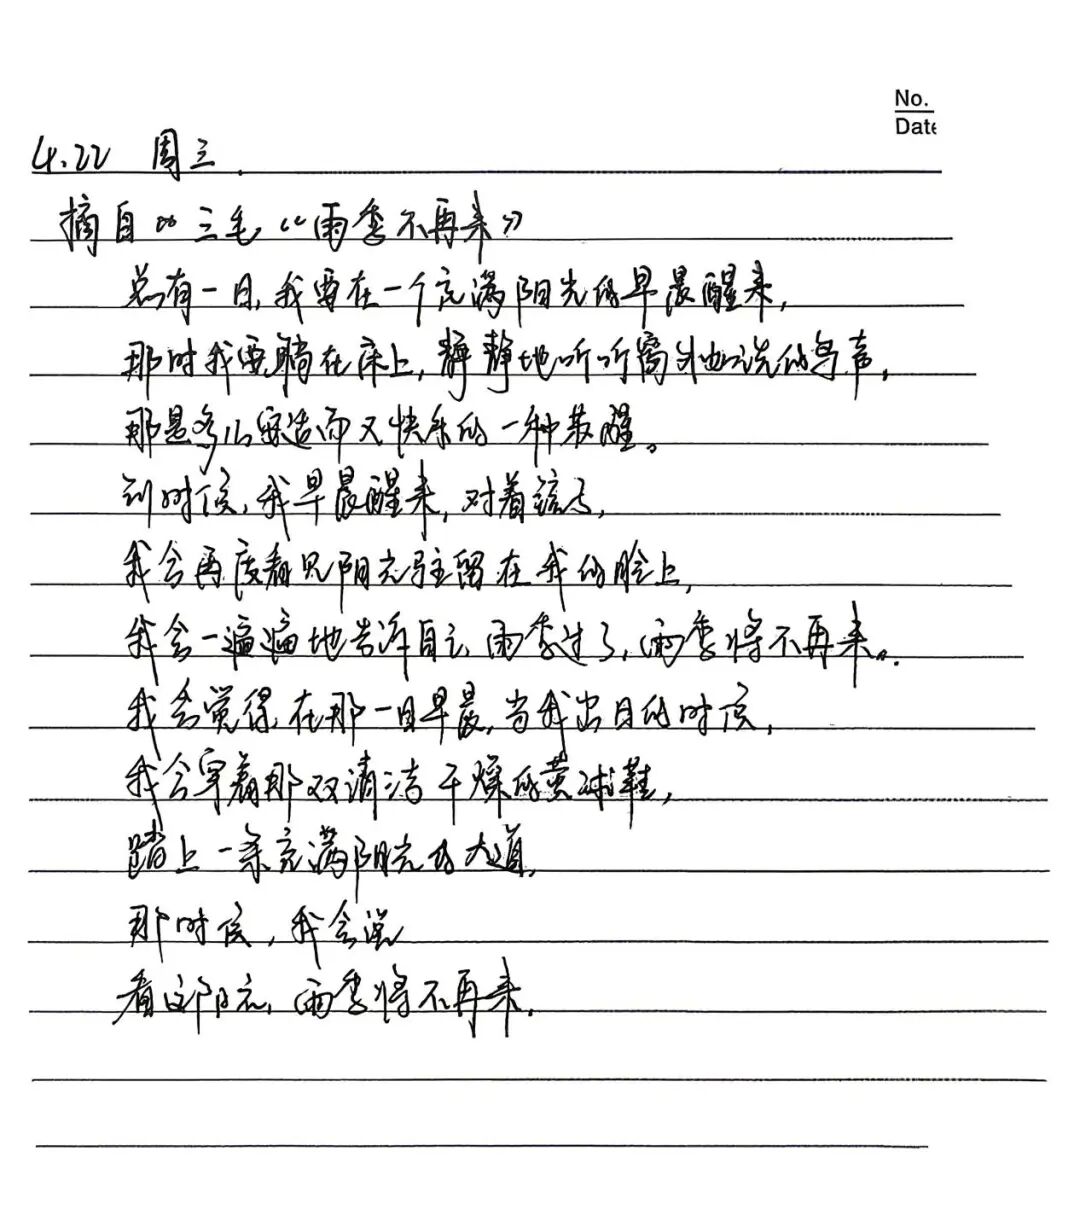 No.
Date
4.22 周三.
摘自 三毛《雨季不再来》
总有一日,我要在一个充满阳光的早晨醒来,
那时我要躺在床上,静静地听听窗外如洗的鸟声,
那是多么安适而又快乐的一种苏醒。
到时候,我早晨醒来,对着镜子,
我会再度看见阳光驻留在我的脸上,
我会一遍遍地告诉自己,雨季过了,雨季将不再来。
我会觉得,在那一日早晨,当我出日的时候,
我会穿着那双清洁干燥的黄球鞋,
踏上一条充满阳光的大道,
那时候,我会说
看这阳光,雨季将不再来.